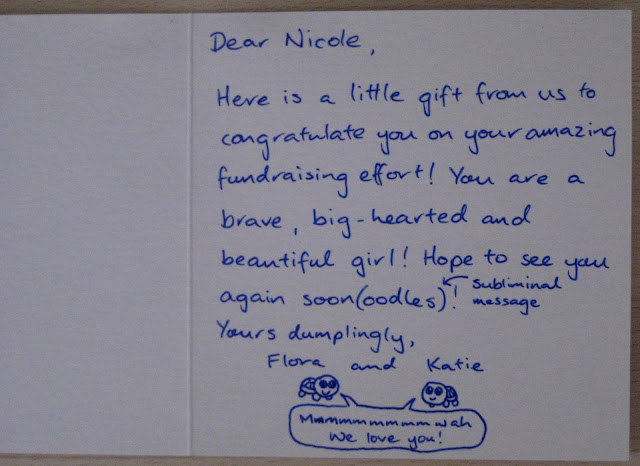 Dear Nicole,
Here is a little gift from us to
congratulate you on your amazing
fundraising effort! You are a
brave, big-hearted and
beautiful girl! Hope to see you
again soon(oodles)! subliminal
message
Yours dumplingly,
Flora and Katie
Mmmmmmmmmwah
We love you!